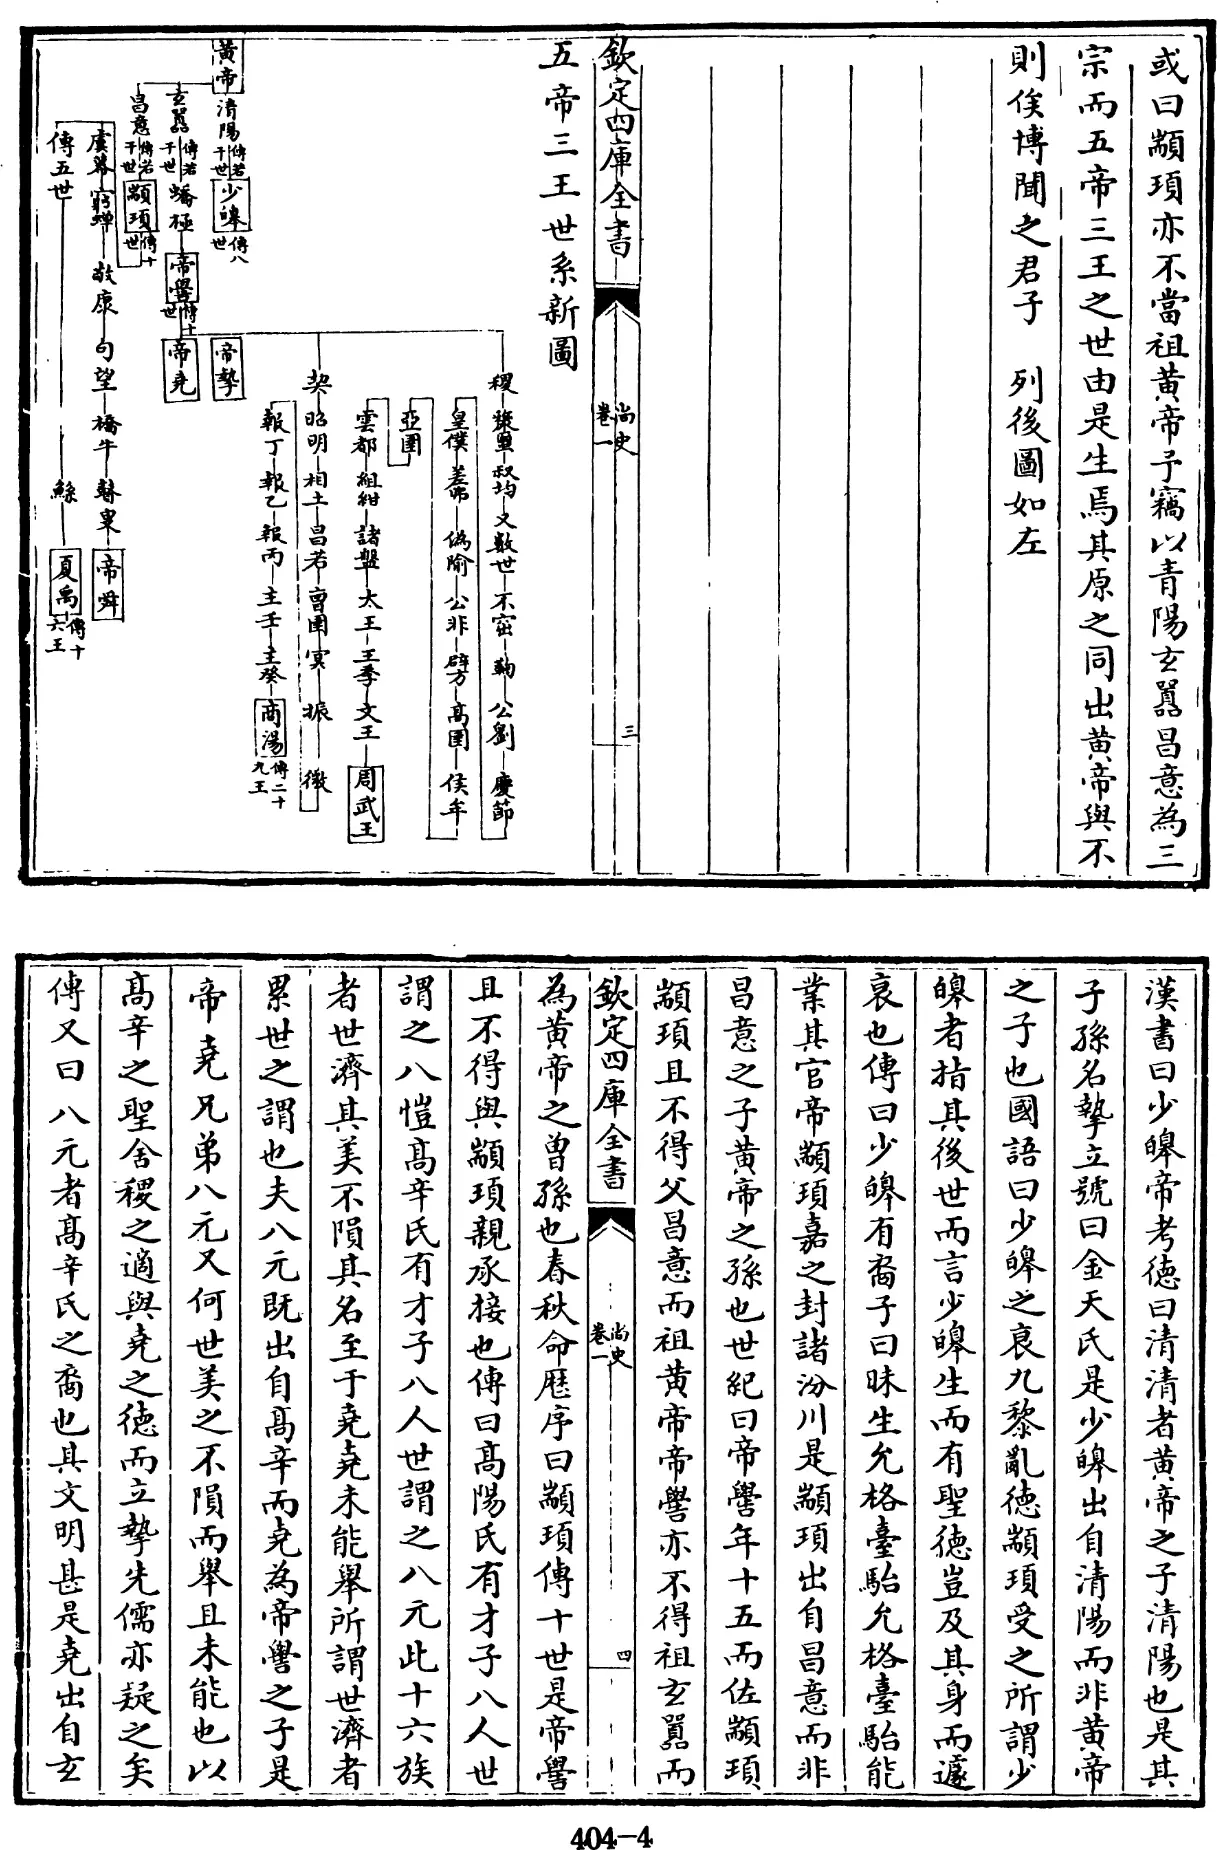 或曰顓頊亦不當祖黃帝予竊以青陽玄囂昌意為三
宗而五帝三王之世由是生焉其原之同出黃帝與不
則俟博聞之君子 列後圖如左
欽定四庫全書
尚史
卷一
三
五帝三王世系新圖
稷 叔均 又數世 不窋 鞠 公劉 慶節
皇僕 差弗 偽隃 公非 辟方 高圉 侯牟
亞圉
雲都 組紺 諸盩 太王 王季 文王 周武王
契 昭明 相土 昌若 曹圉 冥 振 微
報丁 報乙 報丙 主壬 主癸 商湯 傳二十九王
帝摯
黃帝 清陽 傳若干世 少皞 傳八世
玄囂 傳若干世 蟜極 帝嚳 傳十世 帝堯
昌意 傳若干世 顓頊 傳十世
虞幕 窮蟬 敬康 句望 橋牛 瞽叟 帝舜
傳五世 鯀 夏禹 傳十六王
漢書曰少皞帝考德曰清清者黃帝之子清陽也是其
子孫名摯立號曰金天氏是少皞出自清陽而非黃帝
之子也國語曰少皞之衰九黎亂德顓頊受之所謂少
皞者指其後世而言少皞生而有聖德豈及其身而遽
衰也傳曰少皞有裔子曰昧生允格臺駘允格臺駘能
業其官帝顓頊嘉之封諸汾川是顓頊出自昌意而非
昌意之子黃帝之孫也世紀曰帝嚳年十五而佐顓頊
顓頊且不得父昌意而祖黃帝帝嚳亦不得祖玄囂而
欽定四庫全書
尚史
卷一
四
為黃帝之曾孫也春秋命歷序曰顓頊傳十世是帝嚳
且不得與顓頊親承接也傳曰高陽氏有才子八人世
謂之八愷高辛氏有才子八人世謂之八元此十六族
者世濟其美不隕其名至于堯堯未能舉所謂世濟者
累世之謂也夫八元既出自高辛而堯為帝嚳之子是
帝堯兄弟八元又何世美之不隕而舉且未能也以
高辛之聖舍稷之適與堯之德而立摯先儒亦疑之矣
傳又曰八元者高辛氏之裔也其文明甚是堯出自玄
404-4